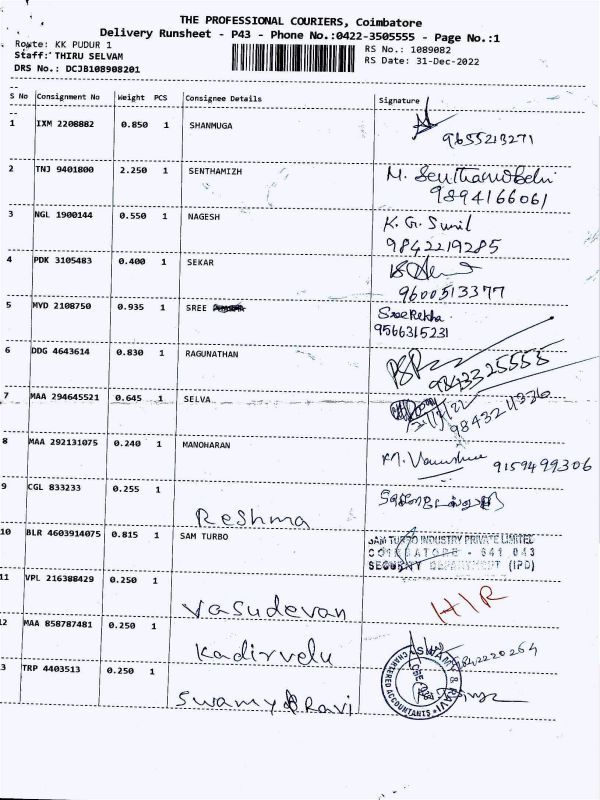 THE PROFESSIONAL COURIERS, Coimbatore
Delivery Runsheet - P43 - Phone No.:0422-3505555 - Page No.:1
Route: KK PUDUR 1
RS No.: 1089082
Staff: THIRU SELVAM
RS Date: 31-Dec-2022
DRS No.: DCJB108908201
S No Consignment No Weight PCS Consignee Details Signature
1 IXM 2208882 0.850 1 SHANMUGA
9655213271
2 TNJ 9401800 2.250 1 SENTHAMIZH M.
9894166061
3 NGL 1900144 0.550 1 NAGESH K. G. Sunil
9842219285
4 PDK 3105483 0.400 1 SEKAR
9600513377
5 MVD 2108750 0.935 1 SREE SreeRekha
9566315231
6 DDG 4643614 0.830 1 RAGUNATHAN
9843325555
7 MAA 294645521 0.645 1 SELVA
9843211336
8 MAA 292131075 0.240 1 MANOHARAN M.
9159499306
9 CGL 833233 0.255 1 Reshma
10 BLR 4603914075 0.815 1 SAM TURBO SAM TURBO INDUSTRY PRIVATE LIMITED
COIMBATORE - 641 043
SECURITY DEPARTMENT (IPD)
11 VPL 216388429 0.250 1 Vasudevan H/R
12 MAA 858787481 0.250 1 Kadirvelu
9842220264
3 TRP 4403513 0.250 1 Swamy & Ravi SWAMY & RAVI
CHARTERED ACCOUNTANTS